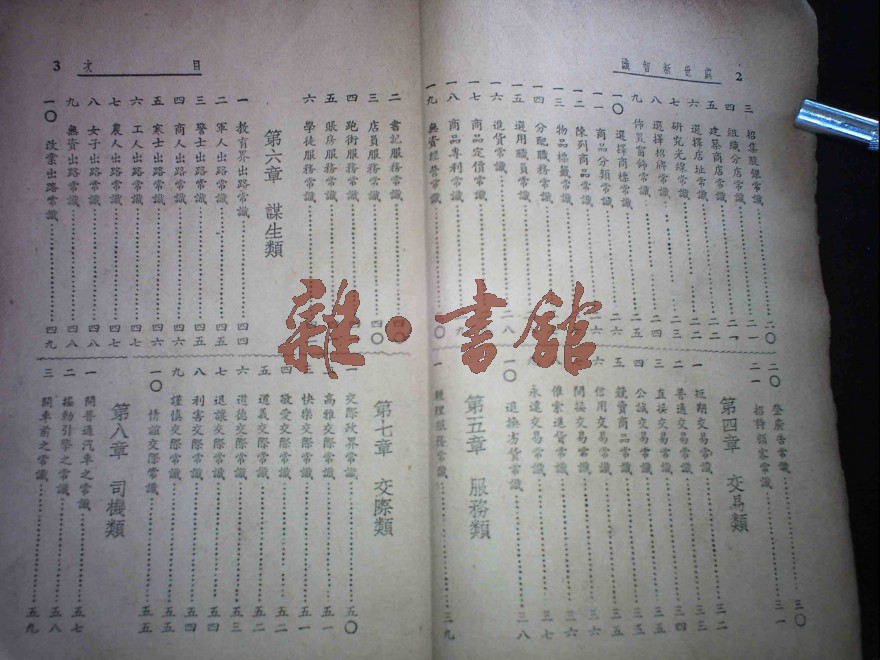 2
處世新智識
三 招集股銀常識 二〇
四 組織分店常識 二一
五 建築商店常識 二二
六 選擇店址常識 二二
七 研究光線常識 二三
八 選擇招牌常識 二四
九 佈置窗飾常識
一〇 選擇商標常識 二六
一一 商品分類常識
一二 陳列商品常識
一三 物品標籤常識
一四 分配職務常識
一五 選用職員常識 二八
一六 進貨常識
一七 商品定價常識
一八 商品專利常識
一九 無資經營常識
二〇 登廣告常識 三〇
二一 招待顧客常識 三一
第四章 交易類
一 短期交易常識 三三
二 普通交易常識 三四
三 直接交易常識
四 公誠交易常識 三五
五 競賣商品常識 三五
六 信用交易常識 三六
間接交易常識 三六
催索進貨常識
永遠交易常識 三七
一〇 退換劣貨常識 三八
第五章 服務類
一 經理服務常識 三九
3
目次
二 書記服務常識 四〇
三 店員服務常識 四〇
四 跑街服務常識
五 賬房服務常識
六 學徒服務常識
第六章 謀生類
一 教育界出路常識 四四
二 軍人出路常識 四五
三 警士出路常識 四五
四 商人出路常識 四六
五 寒士出路常識 四六
六 工人出路常識 四七
七 農人出路常識 四七
八 女子出路常識 四八
九 無資出路常識 四八
一〇 改業出路常識 四九
第七章 交際類
一 交際政界常識 五〇
高雅交際常識 五一
三 快樂交際常識 五一
四 敬愛交際常識 五二
五 道義交際常識 五二
六 道德交際常識 五三
七 退讓交際常識 五四
八 利害交際常識 五四
九 謹慎交際常識 五五
一〇 情誼交際常識 五五
第八章 司機類
一 開普通汽車之常識 五七
二 搖動引擎之常識 五八
三 開車前之常識 五九
雜·書館